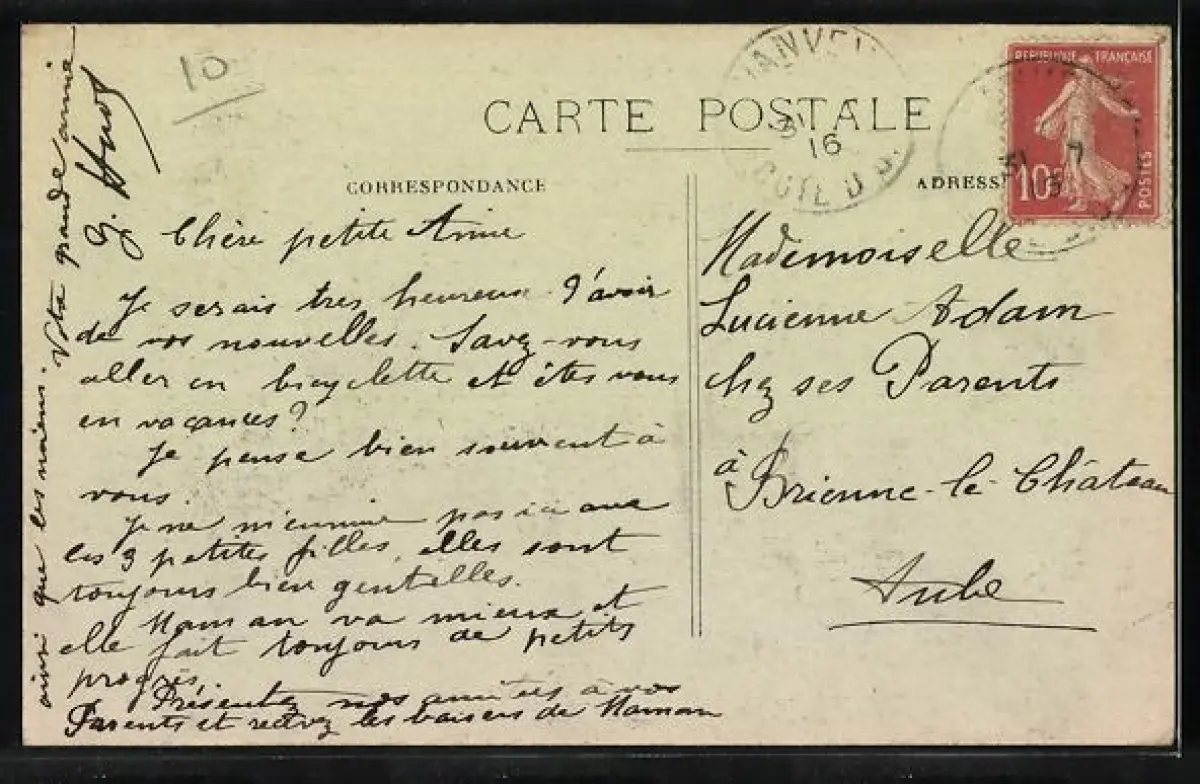 10
CARTE POSTALE
CORRESPONDANCE
Chère petite Amie
Je serais très heureuse d'avoir
de vos nouvelles. Savez-vous
aller en bicyclette et êtes vous
en vacances?
Je pense bien souvent à
vous.
Je ne m'ennuie pas ici avec
les 3 petites filles, elles sont
toujours bien gentilles.
Maman va mieux et
elle fait toujours de petits
progrès.
Présentez nos amitiés à vos
Parents et recevez les baisers de Maman
ainsi que les miens. Votre grande amie
G. Huot
ADRESS
Mademoiselle
Lucienne Adam
chez ses Parents
à Brienne-le-Château
Aube
REPUBLIQUE FRANÇAISE
10c
POSTES
16